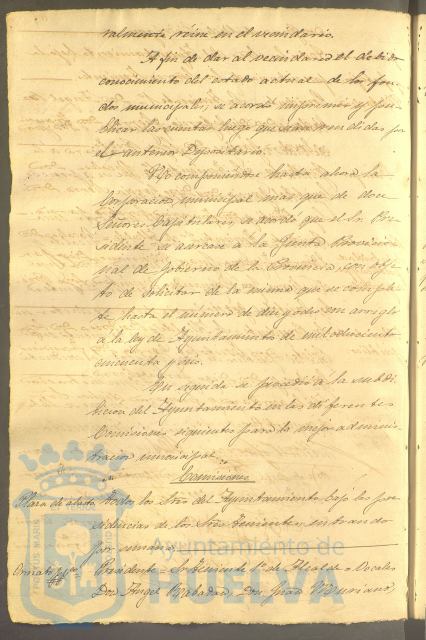 ralmente reine en el vecindario.
A fin de dar al vecindario el debido
conocimiento del estado actual de los fon-
dos municipales, se acordó imprimir y pu-
blicar las cuentas luego que sean rendidas por
el anterior Depositario.
No componiendose hasta ahora la
Corporacion municipal mas que de doce
Señores Capitulares, se acordó que el Sr. Pre-
sidente se acercase á la Junta Provincial
de Gobierno de la Provincia, con obje-
to de solicitar de la misma que se comple-
te hasta el numero de diez y ocho con arreglo
á la ley de Ayuntamientos de mil ochocientos
cincuenta y seis.
En seguida se procedió á la subdi-
vision del Ayuntamiento en las diferentes
Comisiones siguientes para la mejor adminis-
tracion municipal.
Comisiones
Plaza de abastos
Todos los Sres. del Ayuntamiento bajo las pre-
sidencias de los Sres. Tenientes, entrando
por
Ornato
Presidente = Sr. Teniente 1º de Alcalde = Vocales
Don Angel Rabadan, Don Juan
Ayuntamiento de
HUELVA